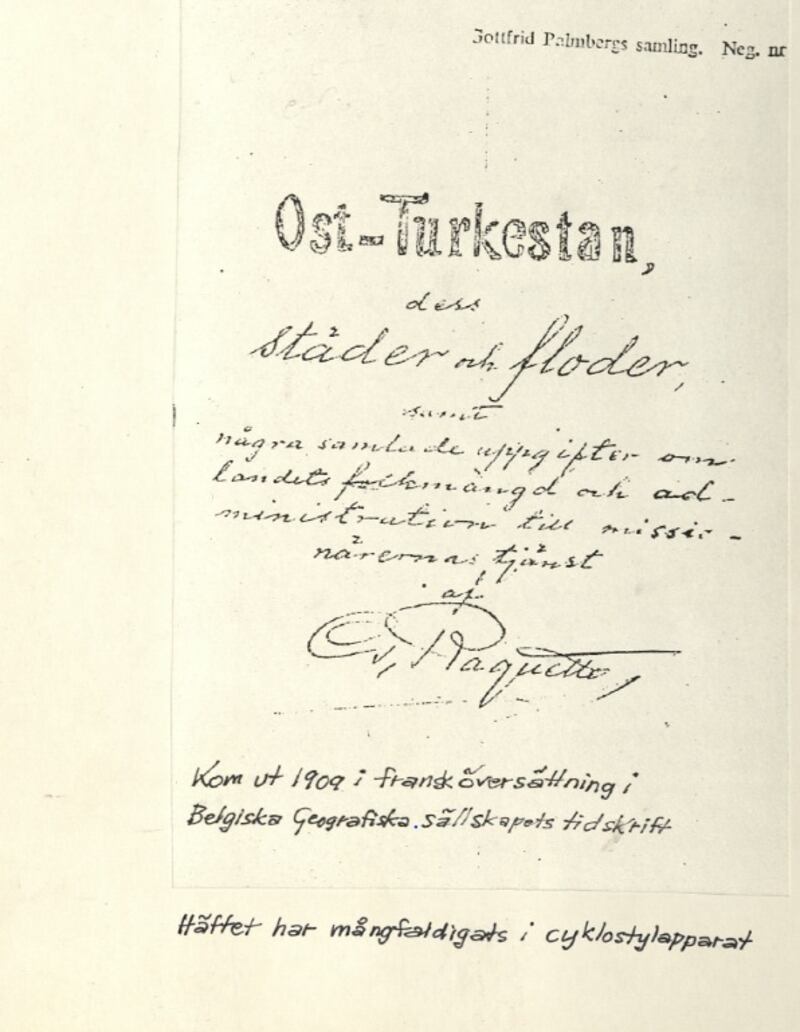 Gottfrid Palmbergs samling. Neg. nr
Ost-Turkestan,
dess
städer och floder,
samt
några samlade uppgifter om
landets folkmängd och ad-
ministration till missio-
närernas tjänst
af
G. Raquette,
Kom ut 1909 i fransk översättning i
Belgiska Geografiska sällskapets tidskrift
Häftet har mångfaldigats i cyklostylapparat